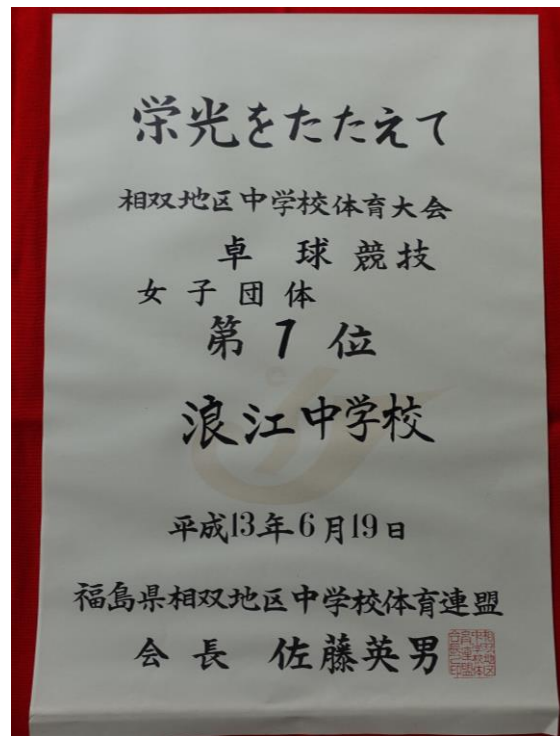 栄光をたたえて
相双地区中学校体育大会
卓 球 競技
女 子 団 体
第 1 位
浪江中学校
平成13年6月19日
福島県相双地区中学校体育連盟
会 長 佐藤英男